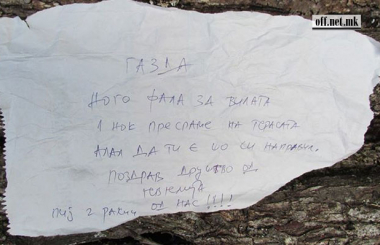 off.net.mk
ГАЗДА
НОГО ФАЛА ЗА ВИЛАТА
1 НОК ПРЕСПАНЕ НА ТЕРАСАТА
АЛАЛ ДА ТИ Е ШО СИ НАПРАВИЛ
ПОЗДРАВ ДРУШТВО ОД
ГЕВГЕЛИЈА
ПИЈ 2 РАКИИ ОД НАС !!!